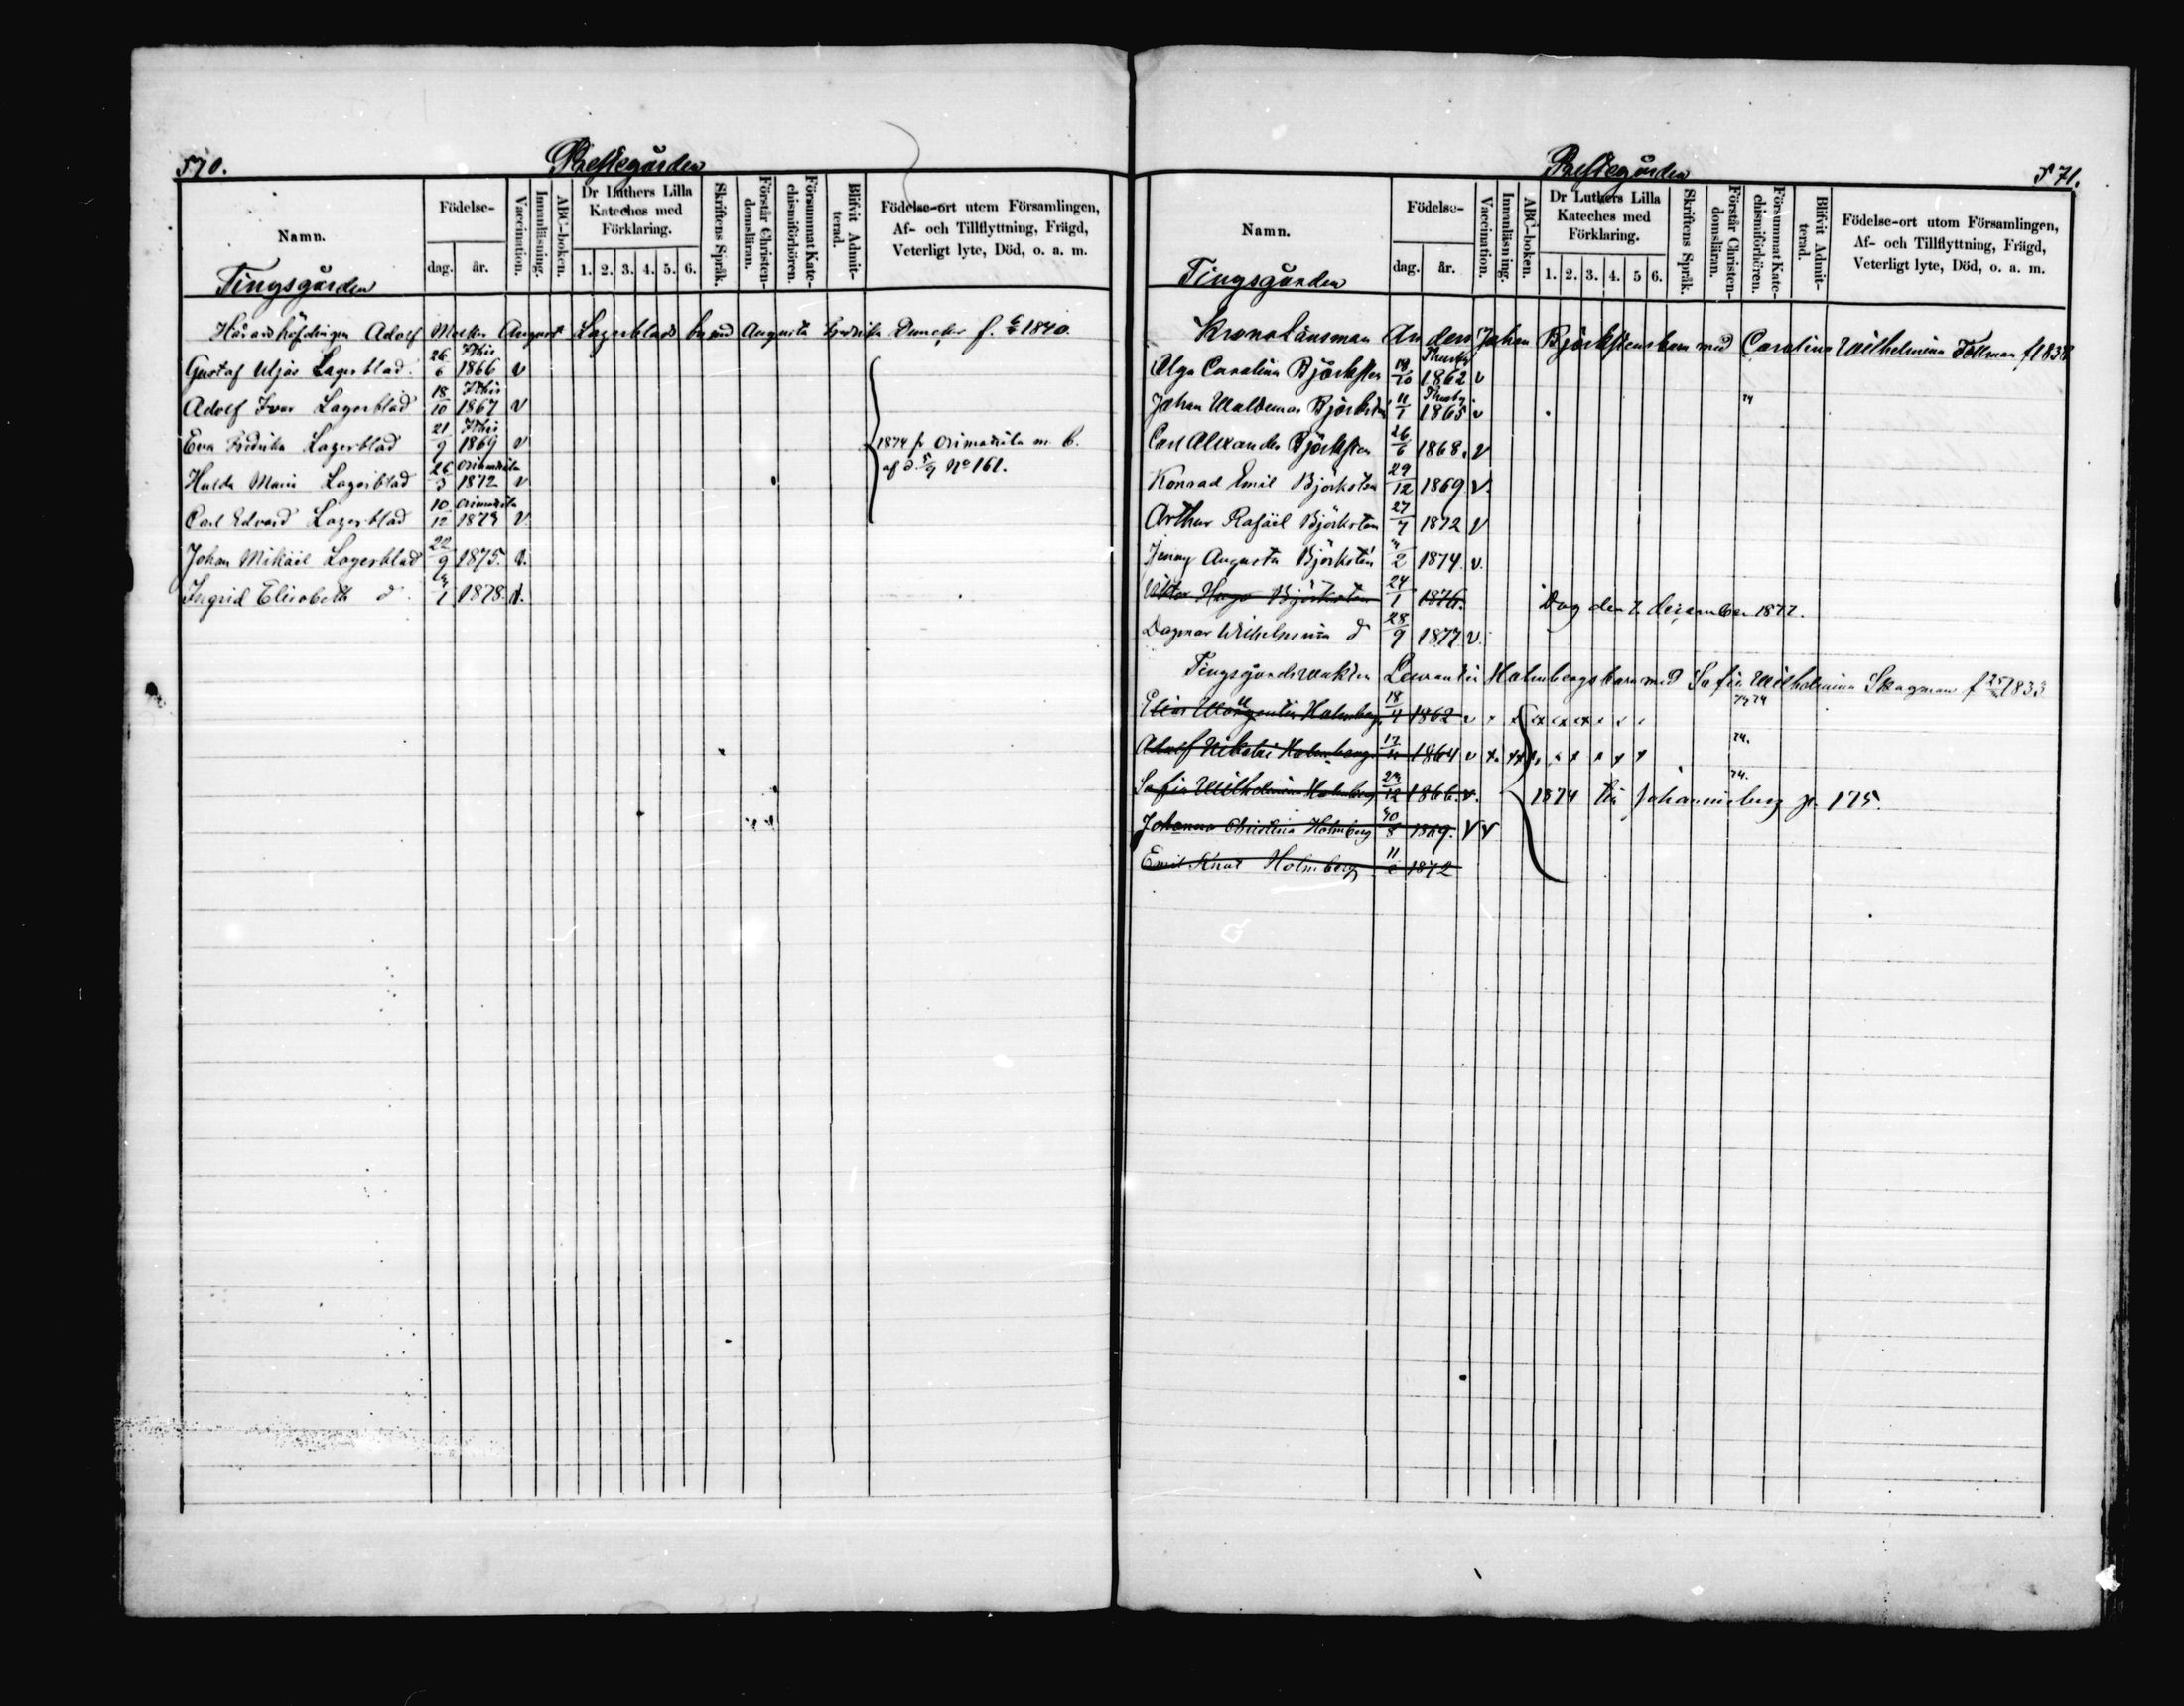 570.
Prestegården
Namn.
Födelse-
dag.
år.
Vaccination.
Innanläsning.
ABC-boken.
Dr Luthers Lilla
Kateches med
Förklaring.
1. 2. 3. 4. 5. 6.
Skriftens Språk.
Förstår Christen-
domsläran.
Försummat Kate-
chismiförhören.
Blifvit Admit-
terad.
Födelse-ort utom Församlingen,
Af- och Tillflyttning, Frägd,
Veterligt lyte, Död, o. a. m.
Tingsgården
Häradshöfdingen Adolf August Lagerblads med Augusta Fredrika f. 1840.
Gustaf Uljas Lagerblad 26/6 1866 v
Adolf Ivar Lagerblad 18/10 1867 v
Eva Fredrika Lagerblad 21/9 1869 v
1874 fr Orimattila m. b.
af d. 5/9 No 161.
Hulda Maria Lagerblad 26/3 Orimattila 1872 v
Carl Edvard Lagerblad 10/12 Orimattila 1873 v
Johan Mikael Lagerblad 22/9 1875. v.
Ingrid Elisabeth d 1878 v.
571.
Prestegården
Namn.
Födelse-
dag.
år.
Vaccination.
Innanläsning.
ABC-boken.
Dr Luthers Lilla
Kateches med
Förklaring.
1. 2. 3. 4. 5 6.
Skriftens Språk.
Förstår Christen-
domsläran.
Försummat Kate-
chismiförhören.
Blifvit Admit-
terad.
Födelse-ort utom Församlingen,
Af- och Tillflyttning, Frägd,
Veterligt lyte, Död, o. a. m.
Tingsgården
Kronolänsman Anders Johan Björkstens barn med Carolina Wilhelmina Tollman f 1838
Olga Carolina Björksten 1862 v
Johan Waldemar Björksten 11/1 Thusby 1865 v
Carl Alexander Björksten 26/6 1868. v
Konrad Emil Björksten 29/12 1869 v.
Arthur Rafael Björksten 27/7 1872 v
Jenny Augusta Björksten 1874 v.
Viktor Hugo Björksten 24/1 1876.
Dog den 7 december 1877.
Dagmar Wilhelmina d 28/9 1877 v.
Tingsgårdsvakten Laurentii Holmbergs barn med Sofia Wilhelmina Skogman f 1833
Elias Holmberg 18/4 1862 v
Adolf Nikolai Holmberg 1864 v
Sofia Wilhelmina Holmberg 1866. v.
1874 till Johannisberg p. 175.
Johanna Christina Holmberg 1869. v v
Emil Knut Holmberg 1872